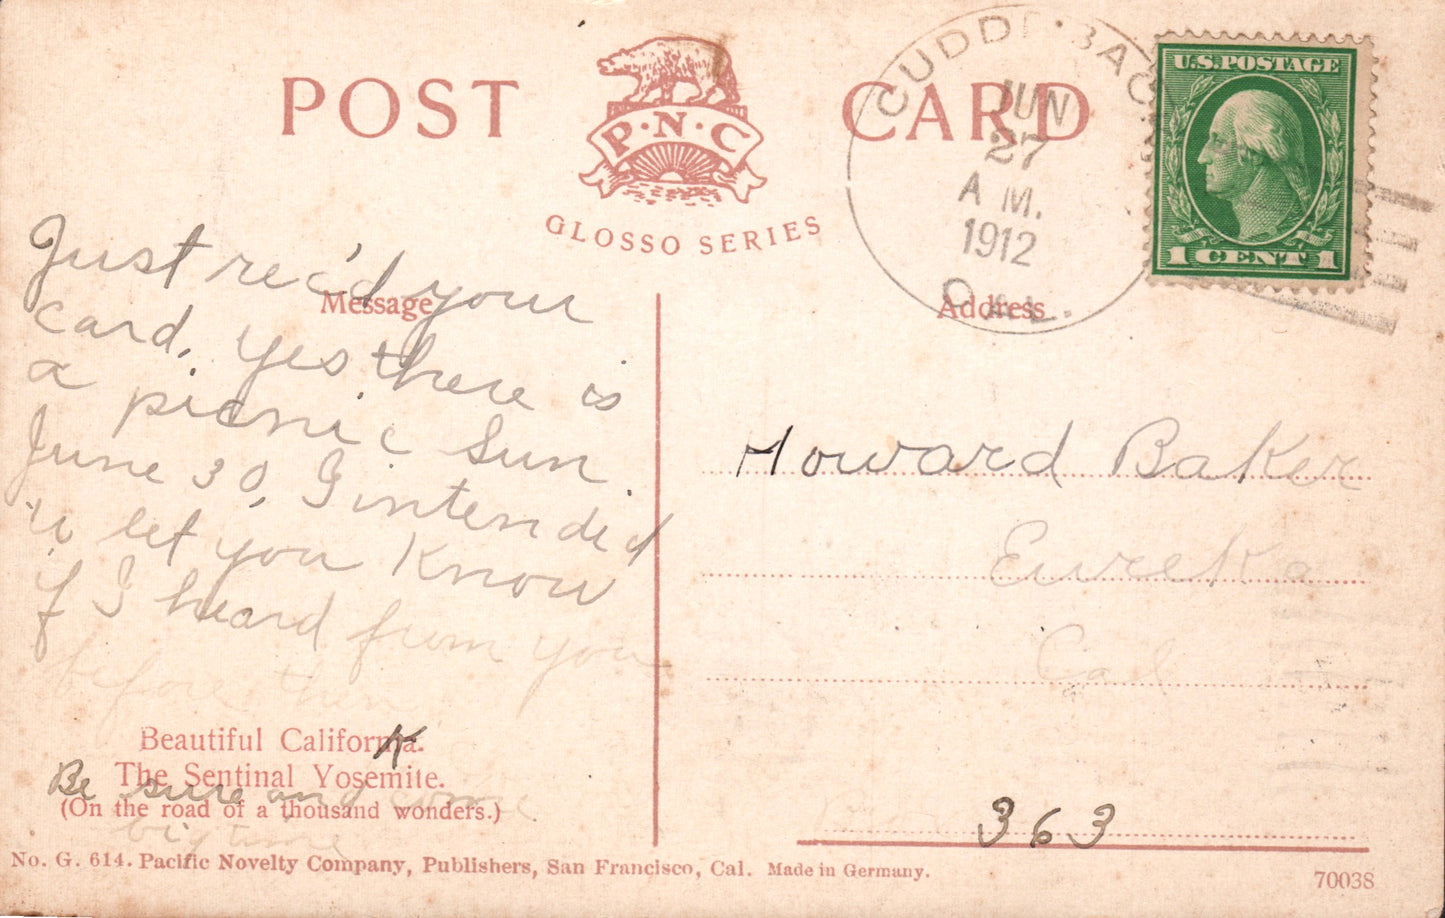 POST CARD
P·N·C
GLOSSO SERIES
CUDDE·BAC
JUN
27
A M.
1912
CAL.
U.S.POSTAGE
1 CENT 1
Message
Address
Just rec'd your
card, yes there is
a picnic Sun
June 30, I intended
to let you know
if I heard from you
before then
K
Be sure and come
big time
Howard Baker
Eureka
Cal
363
Beautiful California.
The Sentinal Yosemite.
(On the road of a thousand wonders.)
No. G. 614. Pacific Novelty Company, Publishers, San Francisco, Cal. Made in Germany.
70038